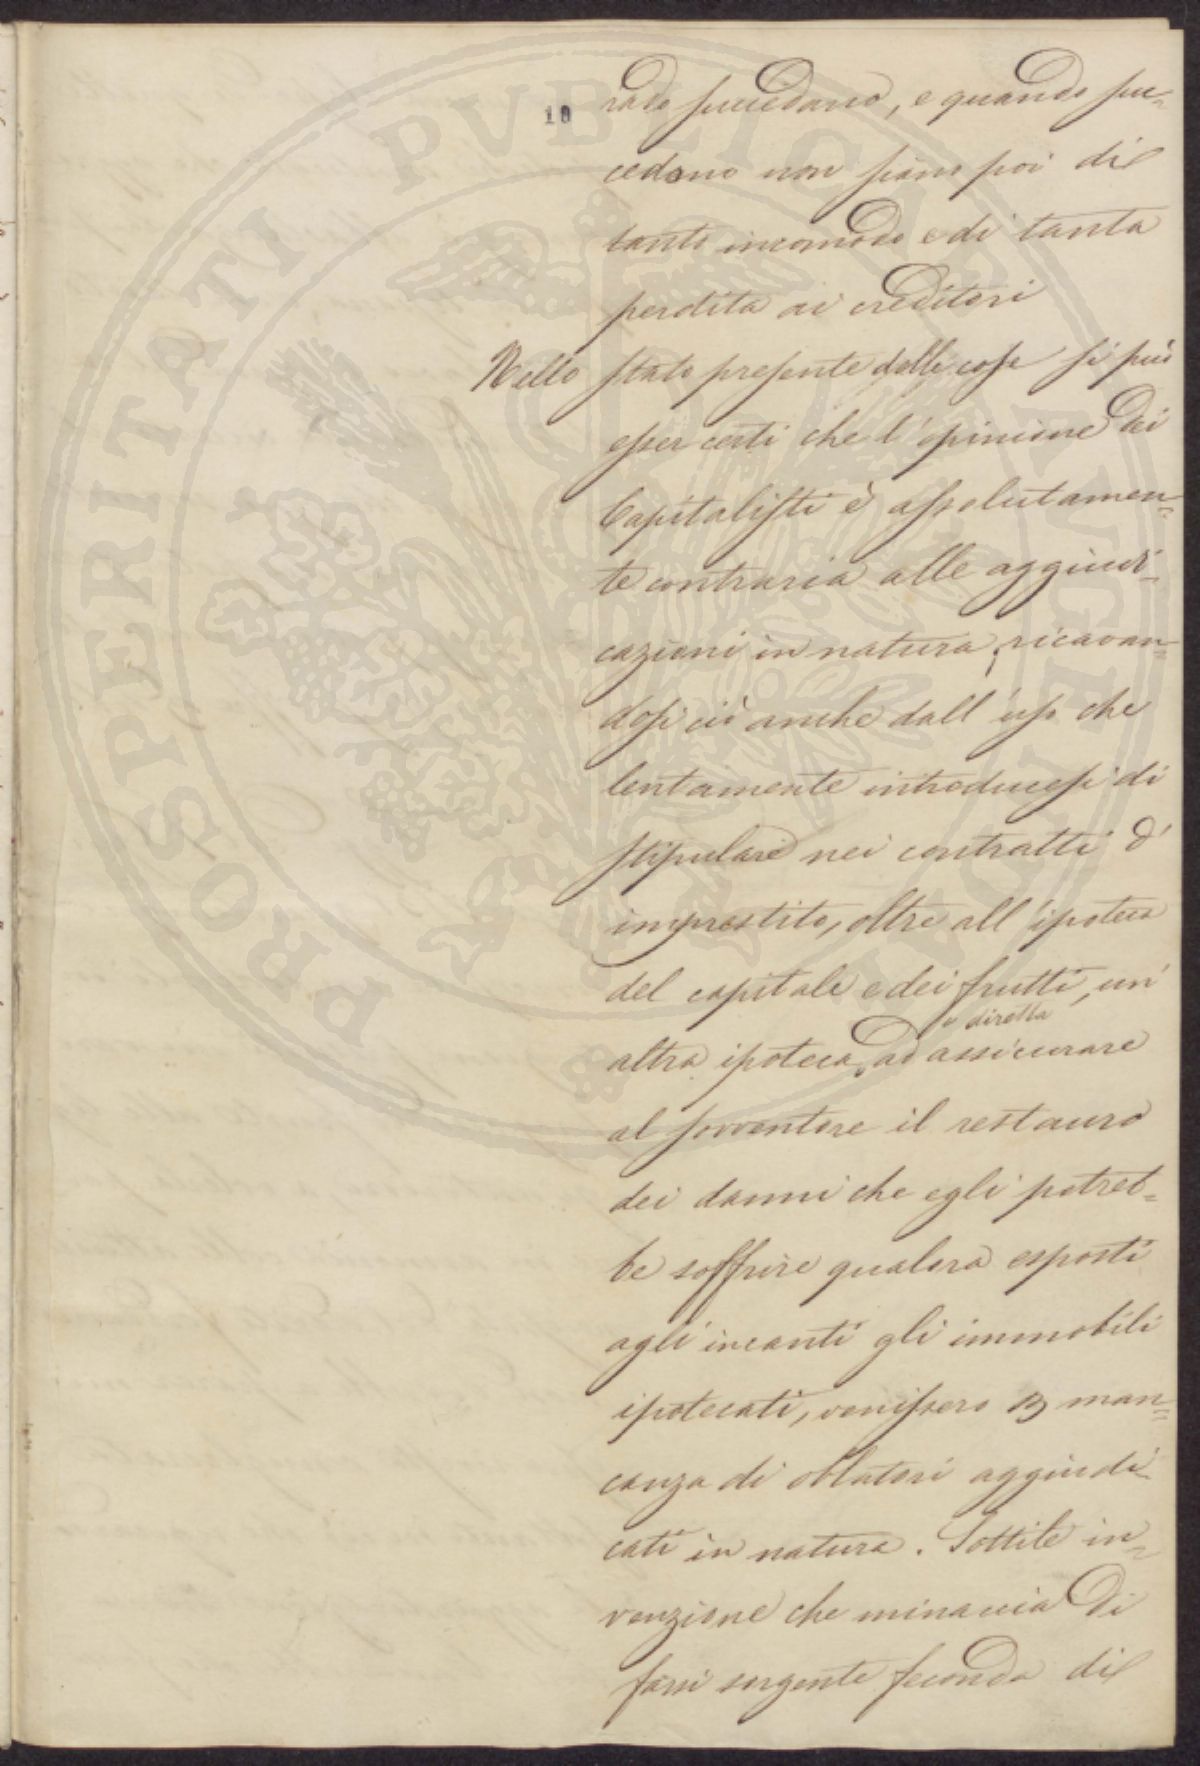 10
rado succedano, e quando suc=
cedono non siano poi di
tanto incomodo e di tanta
perdita ai creditori
Nello stato presente delle cose si può
esser certi che l'opinione dei
Capitalisti è assolutamen=
te contraria alle aggiudi=
cazioni in natura, ricavan=
dosi ciò anche dall'uso che
lentamente introducesi di
stipulare nei contratti d'
imprestito, oltre all'ipoteca
del capitale e dei frutti, un'
e diretta
altra ipoteca ad assicurare
al sovventore il restauro
dei danni che egli potreb=
be soffrire qualora esposti
agli incanti gli immobili
ipotecati, venissero man=
canza di oblatori aggiudi=
cati in natura. Sottile in=
venzione che minaccia di
farsi sorgente feconda di
PROSPERITATI PUBLICAE AUGENDAE